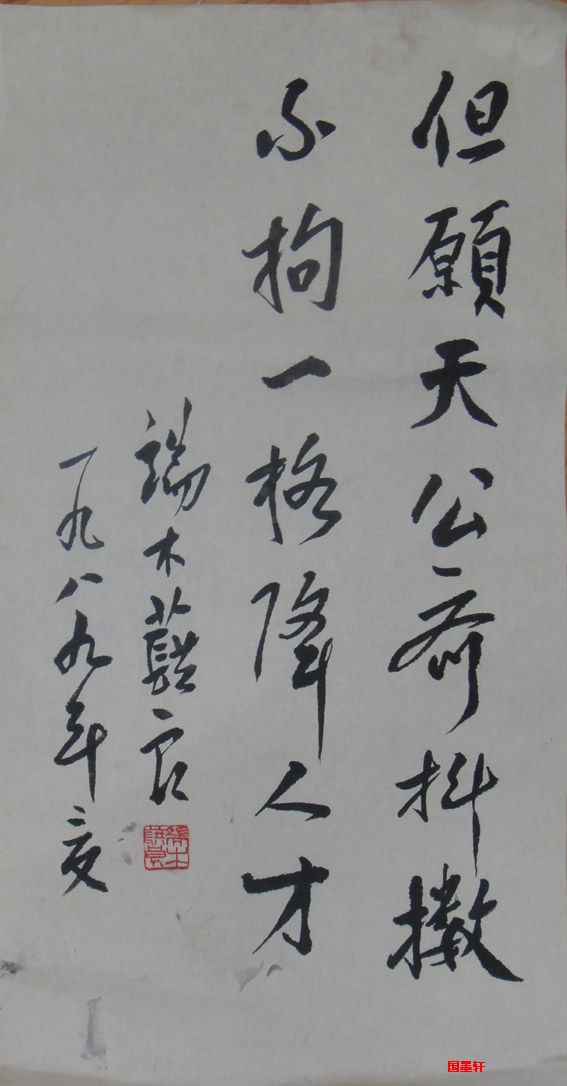 但願天公齐抖擞
不拘一格降人才
端木蕻良
一九八九年夏
端木蕻良
国墨轩